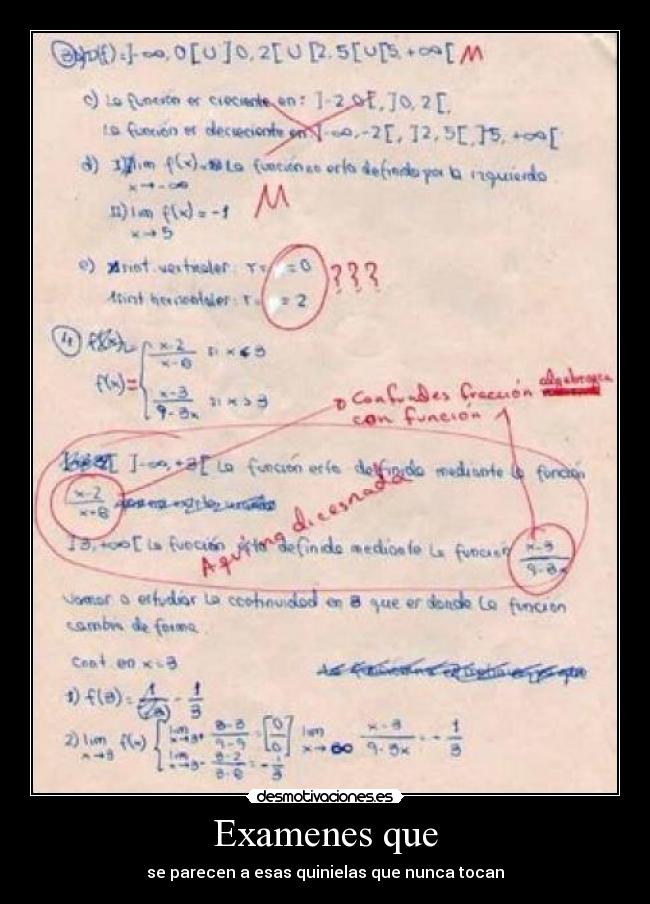 3 b) D(f)=]-∞, 0[ U ]0, 2[ U [2, 5[ U [5, +∞[ M
c) La función es creciente en: ]-2, 0[, ]0, 2[,
La función es decreciente en ]-∞,-2[, ]2, 5[, ]5, +∞[
d) I) lim f(x) La función no esta definida por la izquierda
x→-∞
M
II) lim f(x) = -1
x→5
e) Asint. verticales: r = 0
???
Asint horizontales: r = 2
4
f(x)= x-2 / x-8 si x<3
x-3 / 9-3x si x>3
Confundes fracción algebraica
con función
]-∞,+3[ La función esta definida mediante la función
x-2 / x-8
Aquí no dices nada
]3,+∞[ La función esta definida mediante la función x-3 / 9-3x
vamos a estudiar la continuidad en 3 que es donde la función
cambia de forma.
Cont. en x=3
1) f(3) = - 1/3
2) lim f(x) lim x→3+ 3-3 / 9-9 = [0/0] lim x→∞ x-3 / 9-3x = - 1/3
x→3 lim x→3- 3-2 / 3-8 = - 1/3
desmotivaciones.es
Examenes que
se parecen a esas quinielas que nunca tocan